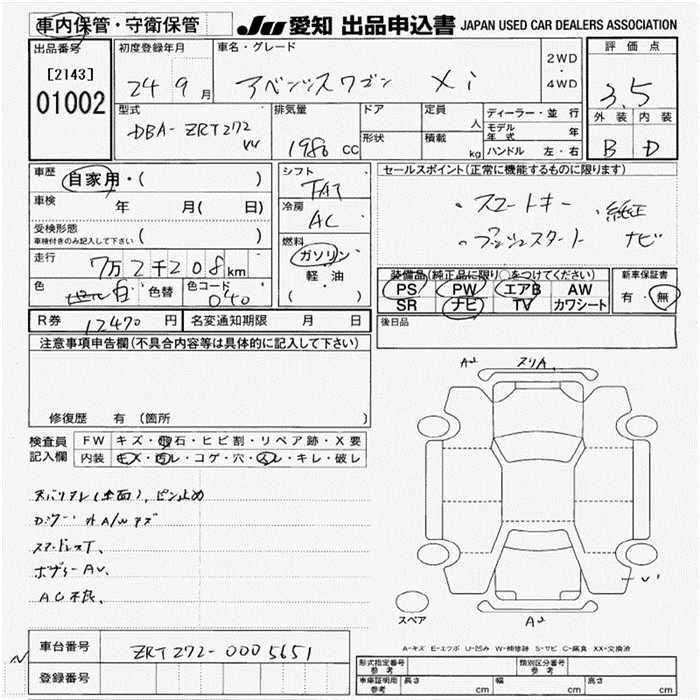 車内保管・守衛保管 JU 愛知 出品申込書 JAPAN USED CAR DEALERS ASSOCIATION
出品番号 [2143] 01002
初度登録年月 24 9 月
車名・グレード アベンシスワゴン Xi
2WD・4WD
評価点 3.5
外装 内装
B D
型式 DBA-ZRT272W
排気量 1980 cc
ドア 形状
定員 人
積載 kg
ディーラー・並行
モデル年式 年
ハンドル 左・右
車歴 自家用・( )
車検 年 月( 日)
受検形態 車検付きのみ記入して下さい ( )
走行 7万2千208km
色 白 色替 色コード 040
シフト FAT
冷房 AC
燃料 ガソリン 軽・油 ( )
セールスポイント(正常に機能するものに限ります)
・スマートキー ・純正
・プッシュスタート ナビ
装備品(純正品に限り〇をつけてください)
PS PW エアB AW
SR ナビ TV カワシート
新車保証書
有・無
R券 12470 円 名変通知期限 月 日
後日品
注意事項申告欄(不具合内容等は具体的に記入して下さい)
修復歴 有 (箇所 )
検査員記入欄
FW キズ・飛石・ヒビ割・リペア跡・X要
内装 キズ・汚レ・コゲ・穴・スレ・キレ・破レ
外A/Wキズ
ボディーAU、
AC不良、
A2
A2
V1
スペア
A-キズ E-エクボ U-凹み W-補修跡 S-サビ C-腐食 XX-交換済
車台番号 ZRT272-0005651
登録番号
形式指定番号 参考 類別区分番号 参考
車庫証明用 参考 長さ cm 幅 cm 高さ cm